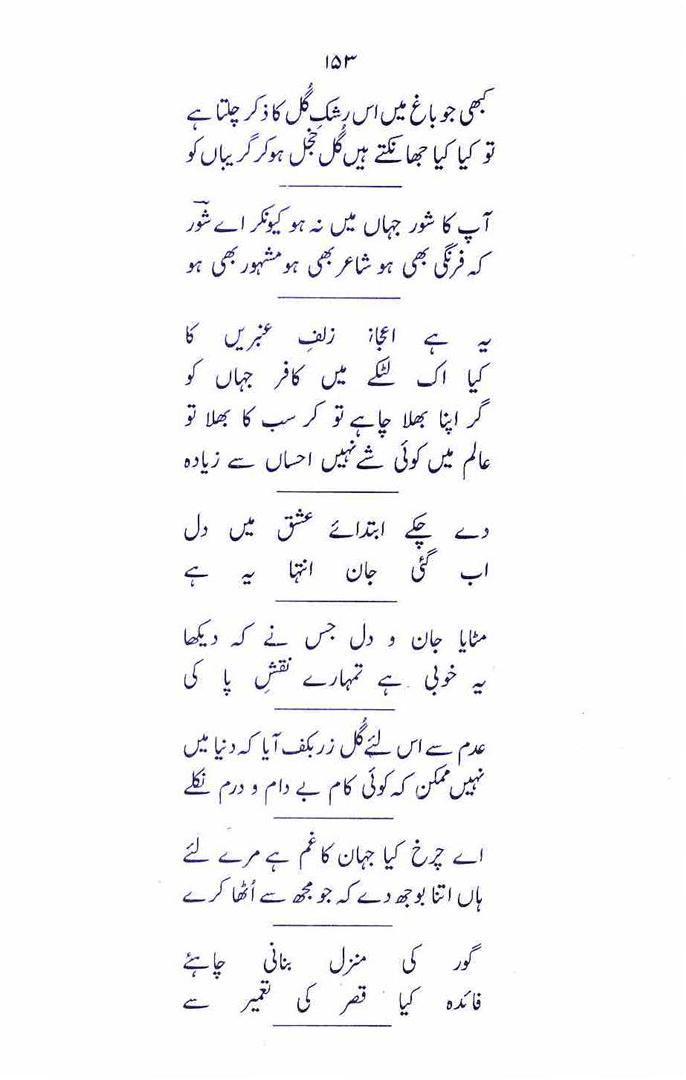 ۱۵۳
کبھی جو باغ میں اس رشکِ گُل کا ذکر چلتا ہے
تو کیا کیا جھانکتے ہیں گُل خجل ہو کر گریباں کو
آپ کا شور جہاں میں نہ ہو کیونکر اے شورؔ
کہ فرنگی بھی ہو شاعر بھی ہو مشہور بھی ہو
یہ ہے اعجاز زلفِ عنبریں کا
کیا اک لٹکے میں کافر جہاں کو
گر اپنا بھلا چاہے تو کر سب کا بھلا تو
عالم میں کوئی شے نہیں احساں سے زیادہ
دے چکے ابتدائے عشق میں دل
اب گئی جان انتہا یہ ہے
مٹایا جان و دل جس نے کہ دیکھا
یہ خوبی ہے تمہارے نقشِ پا کی
عدم سے اس لئے گُل زر بکف آیا کہ دنیا میں
نہیں ممکن کہ کوئی کام بے دام و درم نکلے
اے چرخ کیا جہان کا غم ہے مرے لئے
ہاں اتنا بوجھ دے کہ جو مجھ سے اُٹھا کرے
گور کی منزل بنانی چاہئے
فائدہ کیا قصر کی تعمیر سے